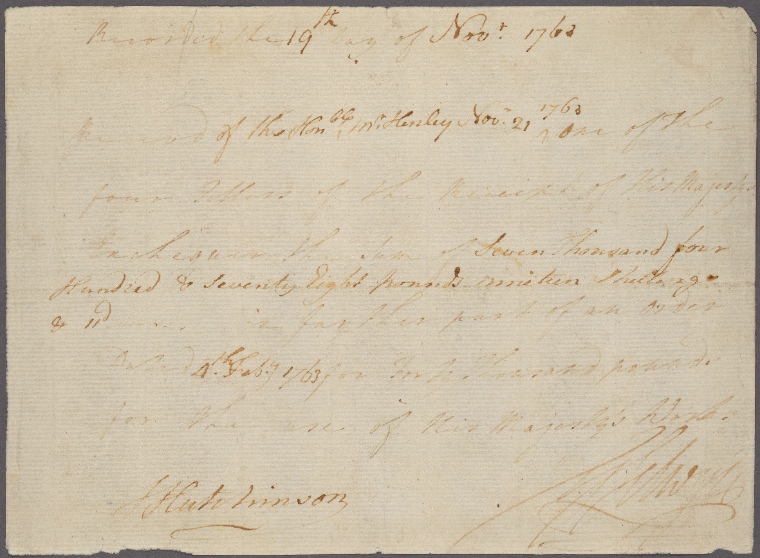 Recorded the 19th day of Novr. 1763
Received of the Honble. Mr. Henley Novr. 21 1763 one of the
four Tellers of the Receipt of His Majestys
Exchequer the Sum of Seven Thousand four
Hundred & Seventy Eight pounds nineteen Shillings
& 11d in further part of an Order
Dated 4th Feby 1763 for Thousand pounds
for the use of His Majesty's Works
J Hutchinson